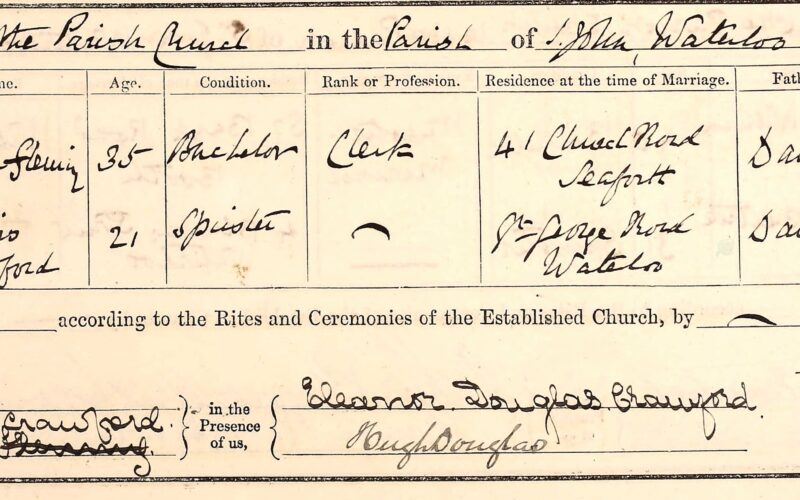 the Parish Church in the Parish of S. John, Waterloo
me. Age. Condition. Rank or Profession. Residence at the time of Marriage. Fath
Fleming 35 Bachelor Clerk 41 Church Road Seaforth Da
21 Spinster St George Road Waterloo Da
ford
according to the Rites and Ceremonies of the Established Church, by
Crawford. in the Presence of us, Eleanor Douglas Crawford.
Fleming. Hugh Douglas